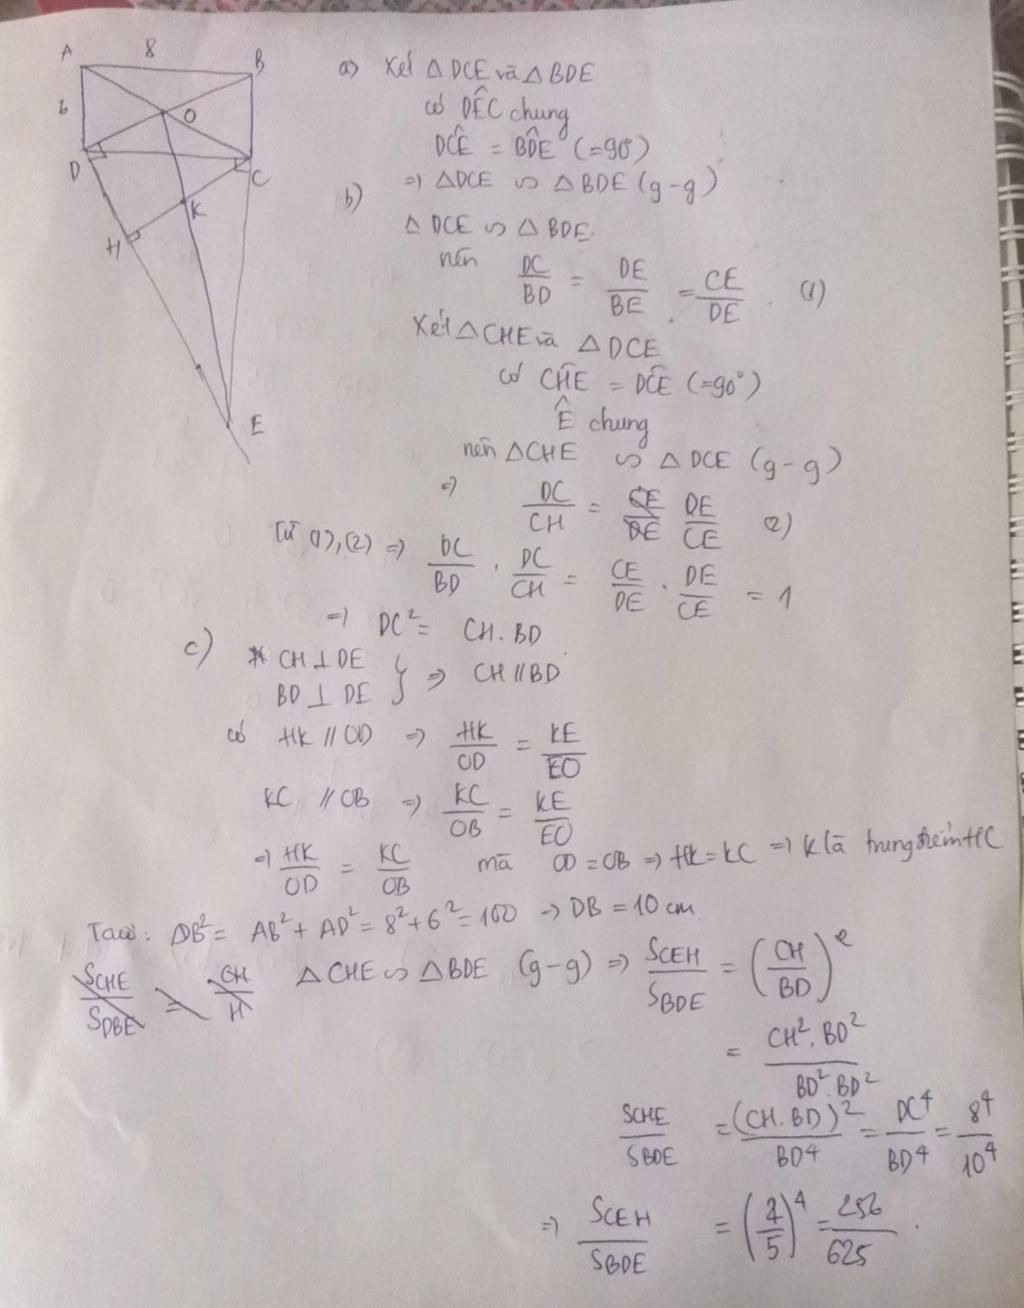 A 8 B
6
O
D C
K
H
E
a) Xét △DCE và △BDE
có DÊC chung
DĈE = BD̂E (=90°)
=> △DCE ∽ △BDE (g-g)
b)
△DCE ∽ △BDE.
nên DC/BD = DE/BE = CE/DE. (1)
Xét △CHE và △DCE
có CĤE = DĈE (=90°)
Ê chung
nên △CHE ∽ △DCE (g-g)
=> DC/CH = CE/DE DE/CE (2)
Từ (1),(2) => DC/BD . DC/CH = CE/DE . DE/CE = 1
=> DC² = CH.BD
c) * CH ⊥ DE
BD ⊥ DE } => CH // BD
có HK // OD => HK/OD = KE/EO
KC // OB => KC/OB = KE/EO
=> HK/OD = KC/OB mà OD = OB => HK = KC => K là trung điểm HC
Ta có: DB² = AB² + AD² = 8² + 6² = 100 -> DB = 10 cm.
SCHE/SDBE = CH/H △CHE ∽ △BDE (g-g) => SCEH/SBDE = (CH/BD)²
= CH².BD²/BD².BD²
SCHE/SBDE = (CH.BD)²/BD⁴ = DC⁴/BD⁴ = 8⁴/10⁴
=> SCEH/SBDE = (4/5)⁴ = 256/625.